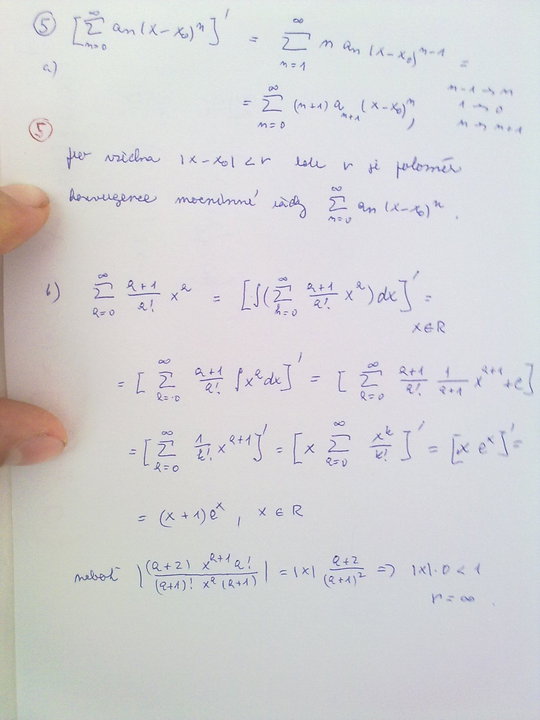 ⑤ [∑_{n=0}^{∞} an (x-x₀)ⁿ]' = ∑_{n=1}^{∞} n an (x-x₀)^{n-1} =
a) n-1 → n
= ∑_{n=0}^{∞} (n+1) a_{n+1} (x-x₀)ⁿ, 1 → 0
n → n+1
⑤
pro všechna |x-x₀| < r kde r je poloměr
konvergence mocninné řady ∑_{n=0}^{∞} an (x-x₀)ⁿ.
b) ∑_{k=0}^{∞} \frac{k+1}{k!} x^k = [∫(∑_{k=0}^{∞} \frac{k+1}{k!} x^k) dx]' =
x ∈ R
= [∑_{k=0}^{∞} \frac{k+1}{k!} ∫x^k dx]' = [∑_{k=0}^{∞} \frac{k+1}{k!} \frac{1}{k+1} x^{k+1} + c]
= [∑_{k=0}^{∞} \frac{1}{k!} x^{k+1}]' = [x ∑_{k=0}^{∞} \frac{x^k}{k!}]' = [x e^x]' =
= (x+1)e^x, x ∈ R
neboť |\frac{(k+2) x^{k+1} k!}{(k+1)! x^k (k+1)}| = |x| \frac{k+2}{(k+1)^2} ⇒ |x|·0 < 1
r = ∞.